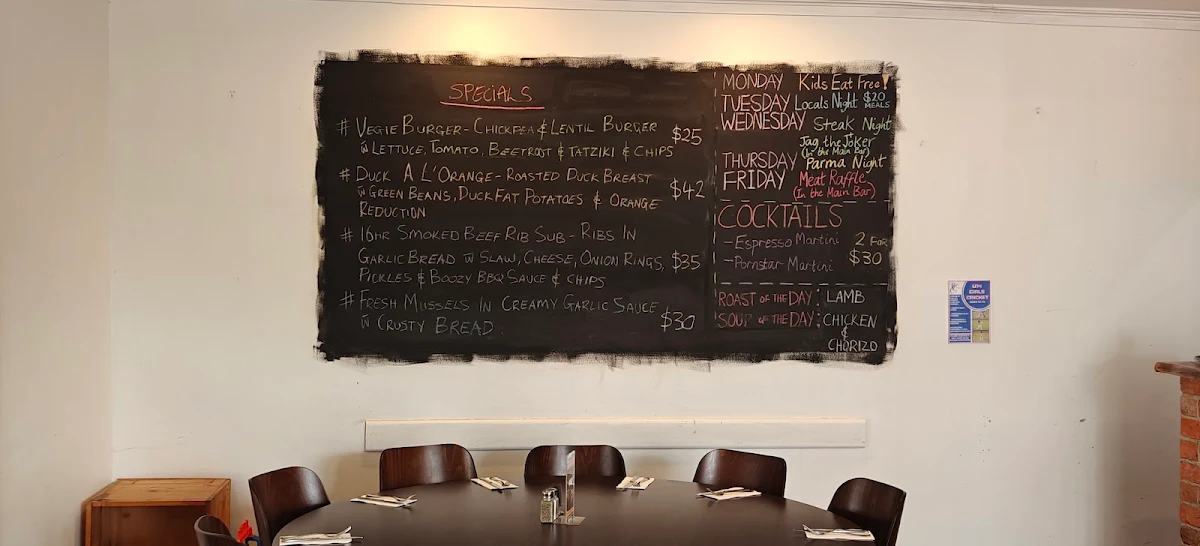 SPECIALS
# VEGIE BURGER - CHICKPEA & LENTIL BURGER
w LETTUCE, TOMATO, BEETROOT & TATZIKI & CHIPS $25
# DUCK A L'ORANGE - ROASTED DUCK BREAST
w GREEN BEANS, DUCK FAT POTATOES & ORANGE $42
REDUCTION
# 16HR SMOKED BEEF RIB SUB - RIBS IN
GARLIC BREAD w SLAW, CHEESE, ONION RINGS, $35
PICKLES & BOOZY BBQ SAUCE & CHIPS
# FRESH MUSSELS IN CREAMY GARLIC SAUCE
w CRUSTY BREAD $30
MONDAY Kids Eat Free!
TUESDAY Locals Night $20 MEALS
WEDNESDAY Steak Night
Jag the Joker
(In the Main Bar)
THURSDAY Parma Night
FRIDAY Meat Raffle
(In the Main Bar)
COCKTAILS
- Espresso Martini 2 FOR
- Pornstar Martini $30
ROAST OF THE DAY: LAMB
SOUP OF THE DAY: CHICKEN
&
CHORIZO
GIRLS
CRICKET